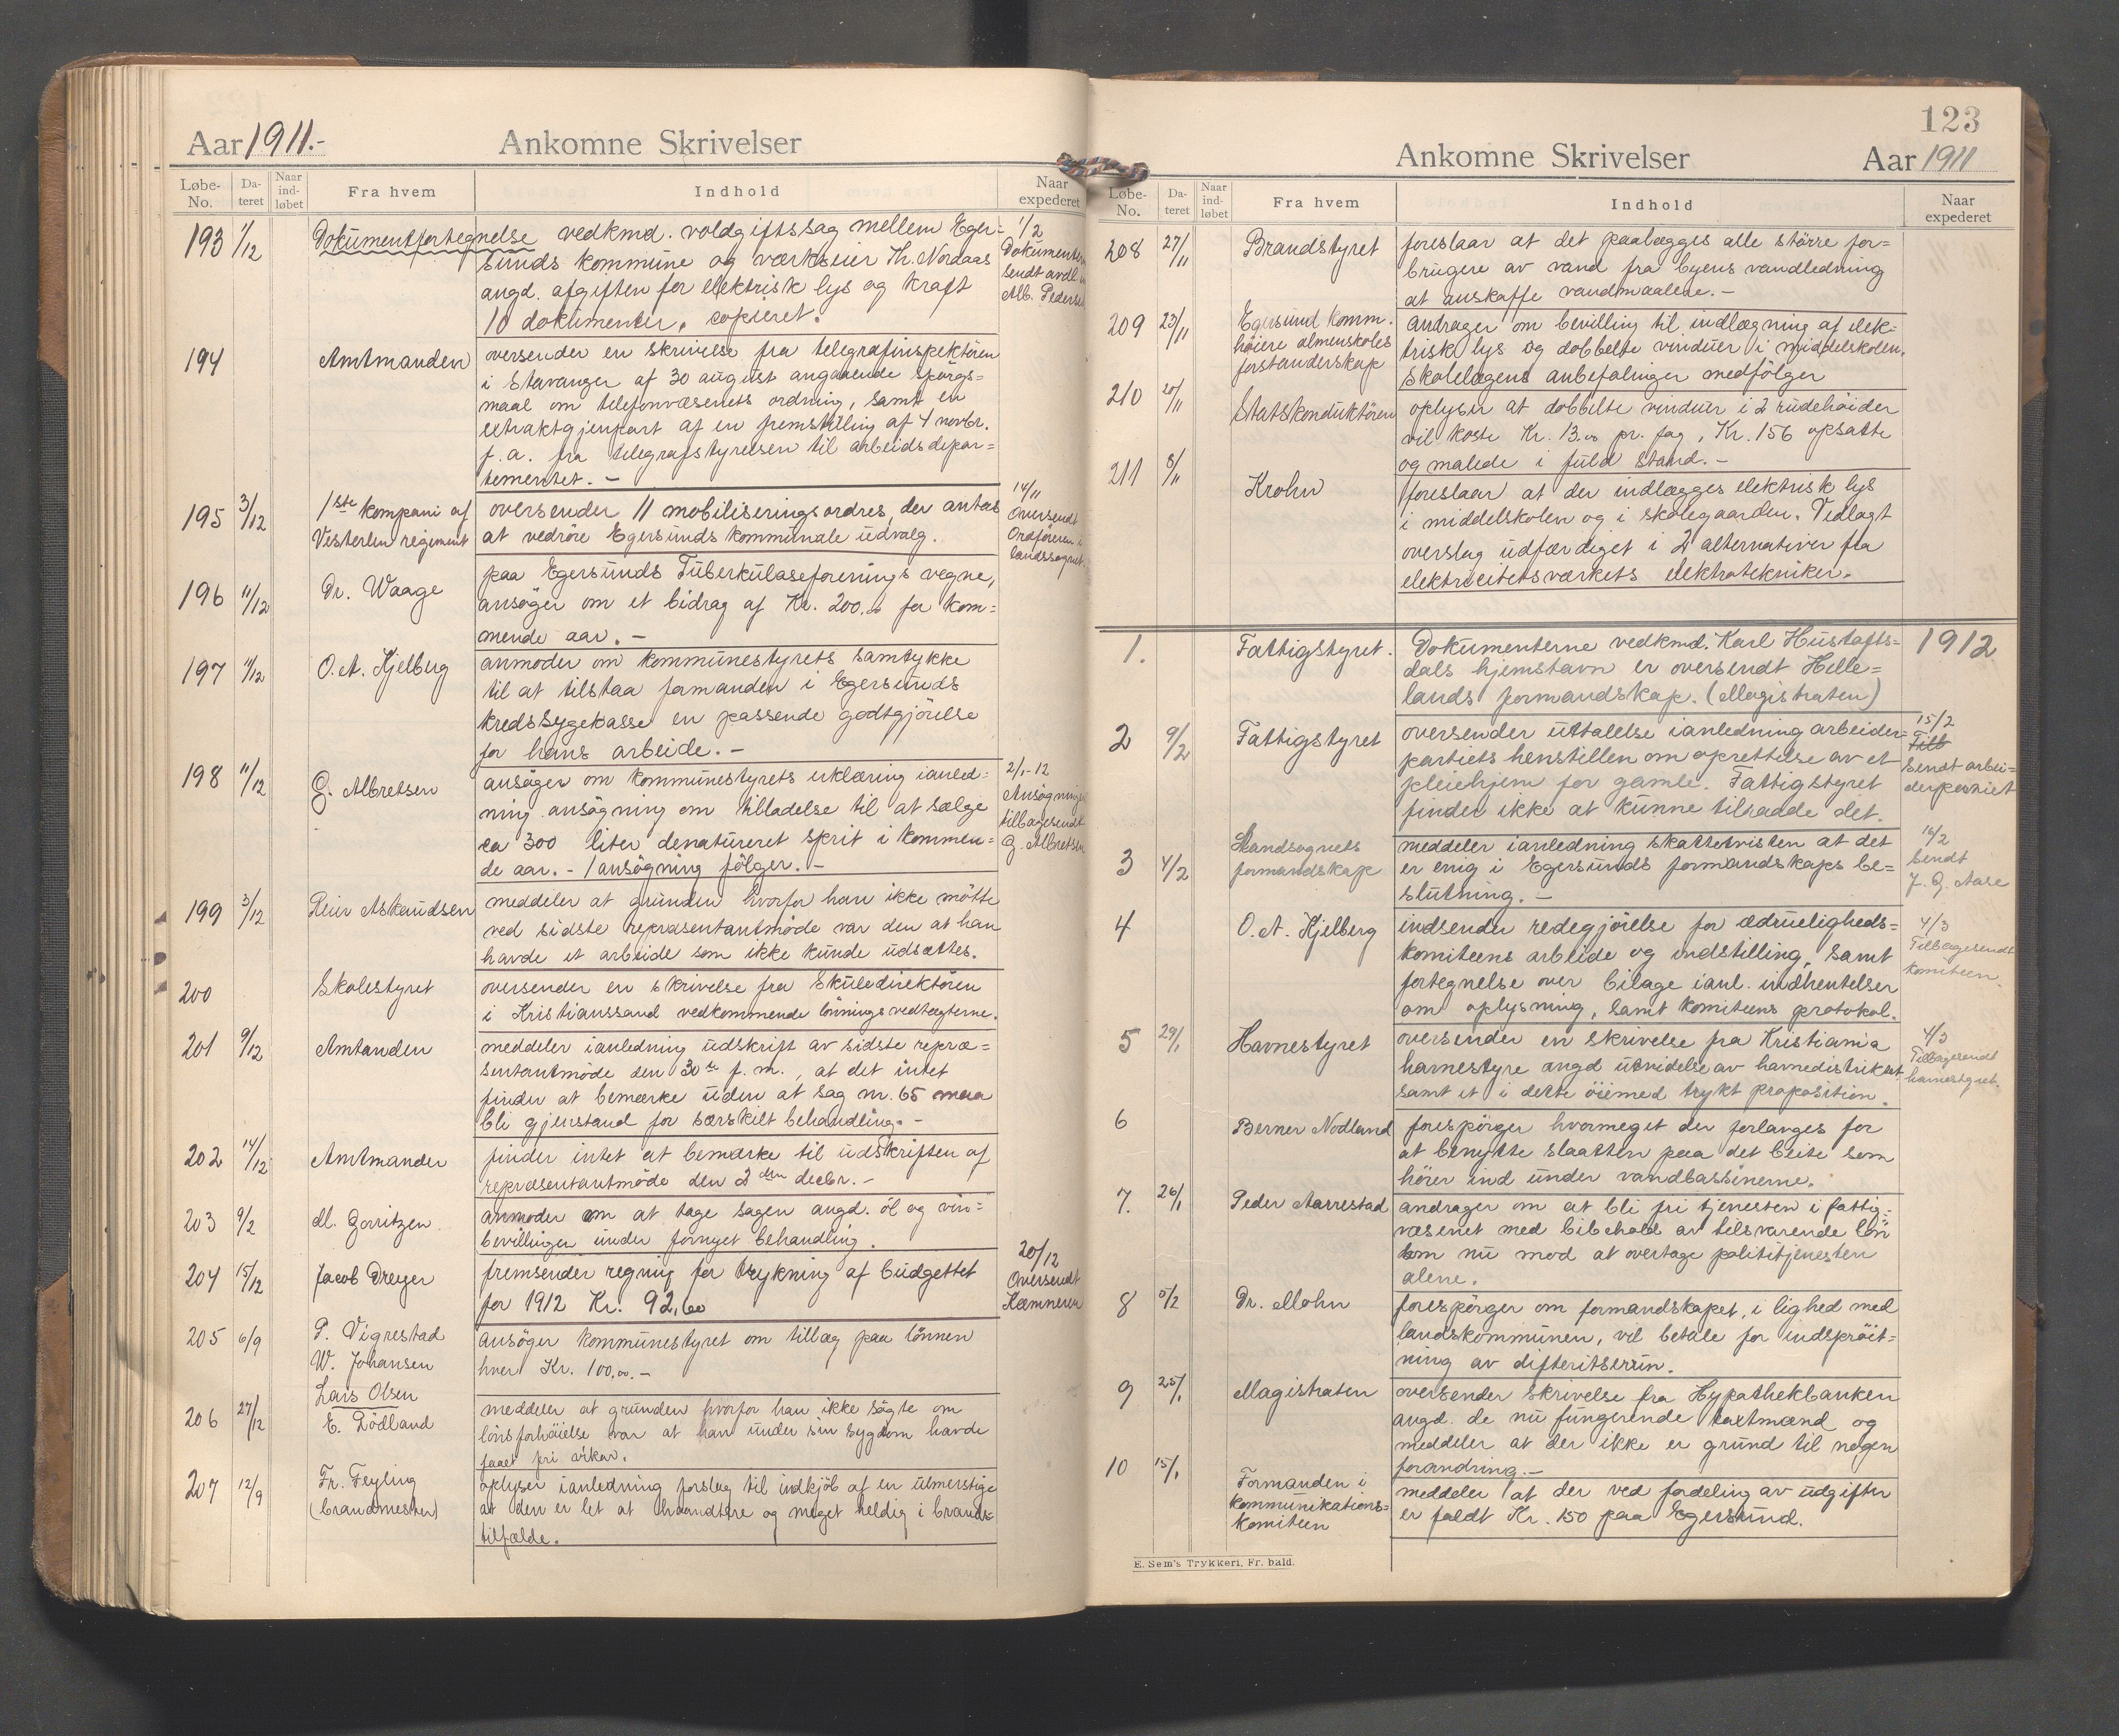 Aar 1911.-
Ankomne Skrivelser
Løbe-No.
Da-teret
Naar ind-løbet
Fra hvem
Indhold
Naar expederet
193 1/12 Dokumentfortegnelse vedkmd. voldgiftssag mellem Eger=
sunds kommune og værkseier Kr. Nordaas
angd. afgiften for elektrisk lys og kraft
10 dokumenter, copieret.
1/2
Dokumenterne
sendt avdl.
Alb. Pedersen
194 Amtmanden oversender en skrivelse fra telegrafinspektören
i Stavanger af 30 august angaaende spörgs=
maal om telefonvæsenets ordning, samt en
extraktgjenpart af en fremstilling af 4 novbr.
f.a. fra telegrafstyrelsen til arbeidsdepar=
tementet. -
195 3/12 1ste kompani af
Vesterlen regiment
oversender 11 mobiliseringsordres, der antas
at vedröre Egersunds kommunale udvalg.
14/11
Oversendt
Ordföreren i
landssognet.
196 11/12 Dr. Waage paa Egersunds Tuberkulaseforenings vegne,
ansöger om et bidrag af Kr. 200.00 for kom=
mende aar. -
197 11/12 O. A. Kjelberg anmoder om kommunestyrets samtykke
til at tilstaa formanden i Egersunds
kredssygekasse en passende godtgjörelse
for hans arbeide. -
198 11/12 G. Albretsen ansöger om kommunestyrets erklæring ianled=
ning ansögning om tilladelse til at sælge
ca 300 liter denatureret sprit i kommen=
de aar. - 1 ansögning fölger. -
2/1-12
Ansögningen
tilbagesendt
G. Albretsen
199 3/12 Peier Askeudsen meddeler at grunden hvorfor han ikke mötte
ved sidste repræsentantmöde var den at han
havde et arbeide som ikke kunde udsættes.
200 Skolestyret oversender en skrivelse fra Skuledirektören
i Kristianssand vedkommende lönningsvedtægterne.
201 9/12 Amtanden meddeler ianledning udskrift av sidste repræ=
sentantmöde den 30te f. m., at det intet
finder at bemærke uden at sag nr. 65 maa
bli gjenstand for særskilt behandling. -
202 14/12 Amtmanden finder intet at bemærke til udskriften af
repræsentantmöde den 2den decbr. -
203 9/2 M. Gorritzen anmoder om at tage sagen angd. öl og vin=
bevillinger under fornyet behandling.
204 15/12 Jacob Dreyer fremsender regning for trykning af budgettet
for 1912 Kr. 92,60
20/12
Oversendt
Kæmneren
205 6/9 P. Vigrestad
W. Johansen
Lars Olsen
ansöger kommunestyret om tillæg paa lönnen
hver Kr. 100,00. -
206 27/12 E. Rödland meddeler at grunden hvorfor han ikke sögte om
lönsforhöielse var at han under sin sygdom havde
faaet fri vikar.
207 12/9 Fr. Feyling
(brandmester)
oplyser ianledning forslag til indkjöb af en ulmerstige
at den er let at haandtere og meget heldig i brands=
tilfælde.
123
Ankomne Skrivelser
Aar 1911
Løbe-No.
Da-teret
Naar ind-løbet
Fra hvem
Indhold
Naar expederet
208 27/11 Brandstyret foreslaar at det paalægges alle större for=
brugere av vand fra byens vandledning
at anskaffe vandmaalere. -
209 23/11 Egersund komm.
höiere almenskoles
forstanderskap
andrager om bevilling til indlægning af elek=
trisk lys og dobbelte vinduer i middelskolen.
Skolelægens anbefalinger medfölger
210 20/11 Statskonduktören oplyser at dobbelte vinduer i 2 rudehöider
vil koste Kr. 13.00 pr. fag, Kr. 156 opsatte
og malede i fuld stand. -
211 8/11 Krohn foreslaar at der indlægges elektrisk lys
i middelskolen og i skolegaarden. Vedlagt
overslag udfærdiget i 2 alternativer fra
elektrecitetsværkets elektrotekniker.
1912
1. Fattigstyret. Dokumenterne vedkmd. Karl Hustafts=
dals hjemstavn er oversendt Helle=
lands formandskap. (Magistraten)
2 9/2 Fattigstyret oversender uttalelse ianledning arbeider=
partiets henstillen om oprettelse av et
pleiehjem for gamle. Fattigstyret
finder ikke at kunne tilraade det.
15/2
Tilb
Sendt arbei=
derpartiet
3 4/2 Landsognets
formandskap
meddeler ianledning skattetvisten at det
er enig i Egersunds formandskaps be=
slutning. -
16/2
Sendt
J. G. Aase
4 O. A. Kjelberg indsender redegjörelse for ædrueligheds=
komiteens arbeide og indstilling, samt
fortegnelse over bilage ianl. indhentelser
om oplysning, samt komiteens protokol.
4/3
Tilbagesendt
komiteen.
5 29/1 Havnestyret oversender en skrivelse fra Kristiania
havnestyre angd utvidelse av havnedistriktet
samt et i dette öiemed trykt proposition.
4/3
Tilbagesendt
havnestyret.
6 Berner Nodland forespörger hvormeget der forlanges for
at benytte slaatten paa det beite som
hörer ind under vandbassinerne.
7. 26/1 Peder Aarrestad andrager om at bli fri tjenesten i fattig=
væsenet med bibehold av tilsvarende lön
som nu mod at overtage polititjenesten
alene.
8 5/2 Dr. Mohn forespörger om formandskapet, i lighed med
landskommunen, vil betale for indspröit=
ning av difteritserum.
9 25/1 Magistraten oversender skrivelse fra Hypothekbanken
angd. de nu fungerende taxtmænd og
meddeler at der ikke er grund til nogen
forandring. -
10 15/1 Formanden i
kommunikations=
komiteen
meddeler at der ved fordeling av udgifter
er faldt Kr. 150 paa Egersund.
E. Sem's Trykkeri, Fr. hald.